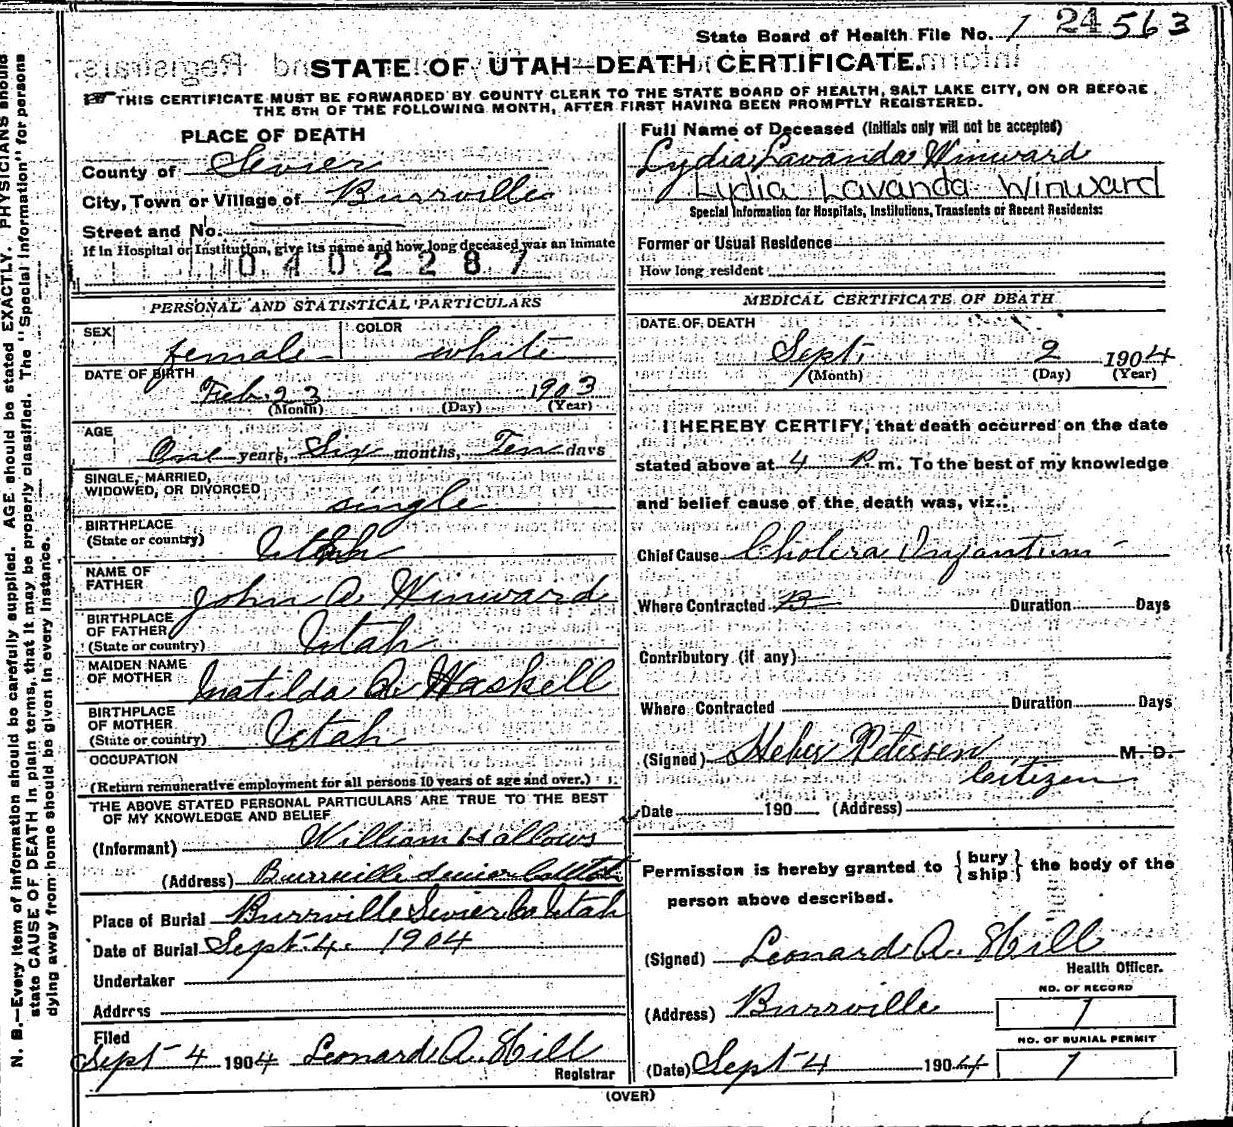 State Board of Health File No. 1 24 563
STATE OF UTAH—DEATH CERTIFICATE.
THIS CERTIFICATE MUST BE FORWARDED BY COUNTY CLERK TO THE STATE BOARD OF HEALTH, SALT LAKE CITY, ON OR BEFORE
THE 5TH OF THE FOLLOWING MONTH, AFTER FIRST HAVING BEEN PROMPTLY REGISTERED.
PLACE OF DEATH
County of Sevier
City, Town or Village of Burrville
Street and No.
If in Hospital or Institution, give its name and how long deceased was an inmate
0402287
Full Name of Deceased (Initials only will not be accepted)
Lydia Lavanda Winward
Lydia Lavanda Winward
Special Information for Hospitals, Institutions, Transients or Recent Residents:
Former or Usual Residence
How long resident
PERSONAL AND STATISTICAL PARTICULARS
SEX female COLOR white
DATE OF BIRTH
Feb. 23 1903
(Month) (Day) (Year)
AGE
One years, Six months, Ten days
SINGLE, MARRIED,
WIDOWED, OR DIVORCED single
BIRTHPLACE
(State or country) Utah
NAME OF
FATHER John A. Winward
BIRTHPLACE
OF FATHER
(State or country) Utah
MAIDEN NAME
OF MOTHER Matilda A. Haskell
BIRTHPLACE
OF MOTHER
(State or country) Utah
OCCUPATION
(Return remunerative employment for all persons 10 years of age and over.)
THE ABOVE STATED PERSONAL PARTICULARS ARE TRUE TO THE BEST
OF MY KNOWLEDGE AND BELIEF
(Informant) William Hallows
(Address) Burrville Sevier Co Utah
Place of Burial Burrville Sevier Co Utah
Date of Burial Sept. 4. 1904
Undertaker
Address
Filed
Sept 4 1904 Leonard A. Hill
Registrar
MEDICAL CERTIFICATE OF DEATH
DATE OF DEATH
Sept. 2 1904
(Month) (Day) (Year)
I HEREBY CERTIFY, that death occurred on the date
stated above at 4 P. m. To the best of my knowledge
and belief cause of the death was, viz.:
Chief Cause Cholera Infantum
Where Contracted B Duration Days
Contributory (if any)
Where Contracted Duration Days
(Signed) Heber Petersen M. D.
Citizen
Date 190 (Address)
Permission is hereby granted to { bury ship } the body of the
person above described.
(Signed) Leonard A. Hill
Health Officer.
(Address) Burrville
NO. OF RECORD
1
NO. OF BURIAL PERMIT
1
(Date) Sept 4 1904
(OVER)
N. B.—Every item of information should be carefully supplied. AGE should be stated EXACTLY. PHYSICIANS should
state CAUSE OF DEATH in plain terms, that it may be properly classified. The "Special Information" for persons
dying away from home should be given in every instance.